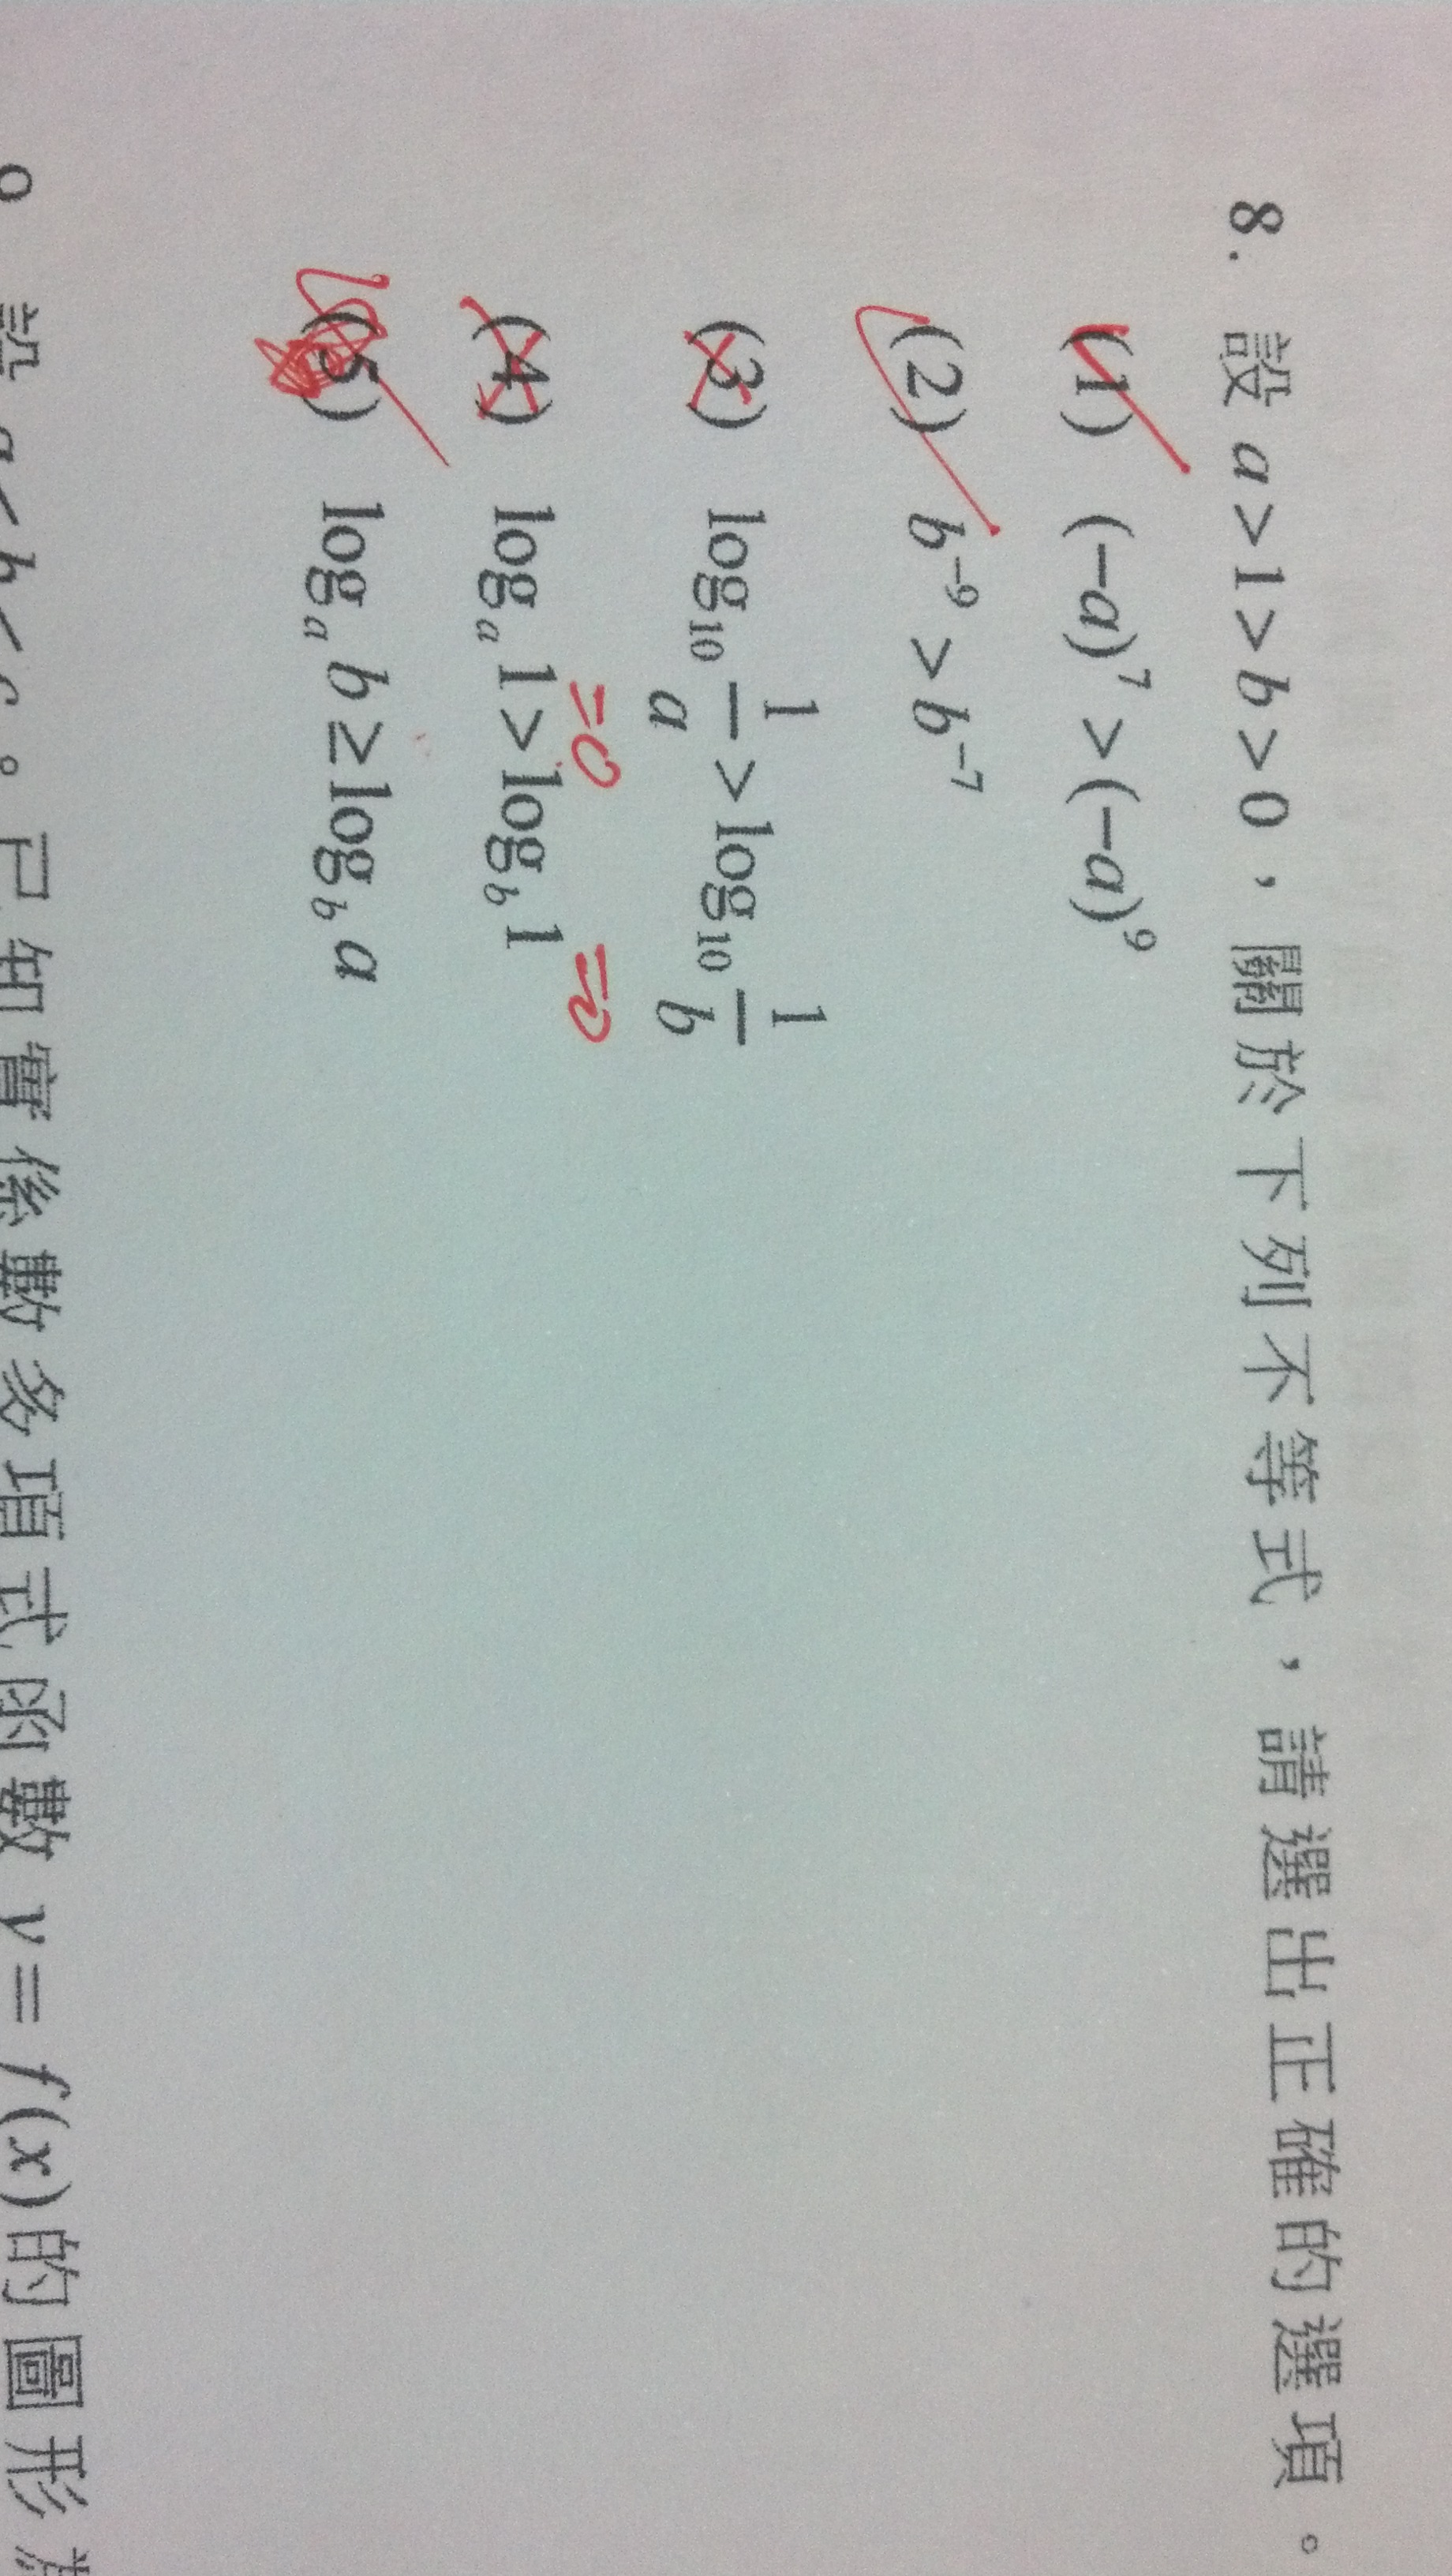 8. 設 a>1>b>0，關於下列不等式，請選出正確的選項。
(1) (−a)⁷ > (−a)⁹
(2) b⁻⁹ > b⁻⁷
(3) log₁₀ 1/a > log₁₀ 1/b
=0 =0
(4) logₐ 1 > log_b 1
(5) logₐ b ≥ log_b a
9 設 a<b<c。已知實係數多項式函數 y = f(x) 的圖形